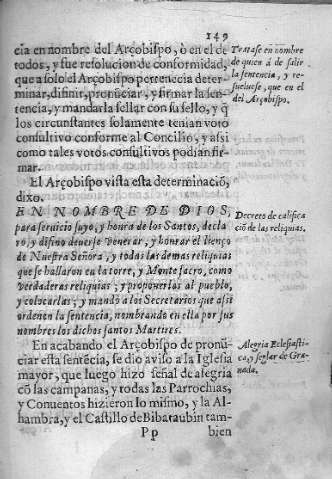 149
cia en nombre del Arçobispo, ò en el de
todos, y fue resolucion de conformidad,
que a solo el Arçobispo pertenecia deter-
minar, difinir, pronũciar, y firmar la sen-
tencia, y mandarla sellar con su sello, y q̃
los circunstantes solamente tenian voto
consultivo conforme al Concilio, y assi
como tales votos consultivos podian fir-
mar.
El Arçobispo vista esta determinaciõ,
dixo.
EN NOMBRE DE DIOS,
para servicio suyo, y honra de los Santos, decla
ro, y difino deverse venerar, y honrar el lienço
de Nuestra Señora, y todas las demas reliquias
que se hallaron en la torre, y Monte sacro, como
verdaderas reliquias; y proponerlas al pueblo,
y colocarlas; y mandò a los Secretarios que assi
ordenen la sentencia, nombrando en ella por sus
nombres los dichos santos Martires.
En acabando el Arçobispo de pronũ-
ciar esta sentẽcia, se dio aviso a la Iglesia
mayor, que luego hizo señal de alegria
cõ las campanas, y todas las Parrochias,
y Conuentos hizieron lo mismo, y la Al-
hambra, y el Castillo de Bibataubin tam-
Pp bien
Tratase en nombre
de quien à de salir
la sentencia, y re-
suelvese, que en el
del Arçobispo.
Decreto de califica
ciõ de las reliquias.
Alegria Eclesiasti-
ca, y seglar de Gra-
nada.